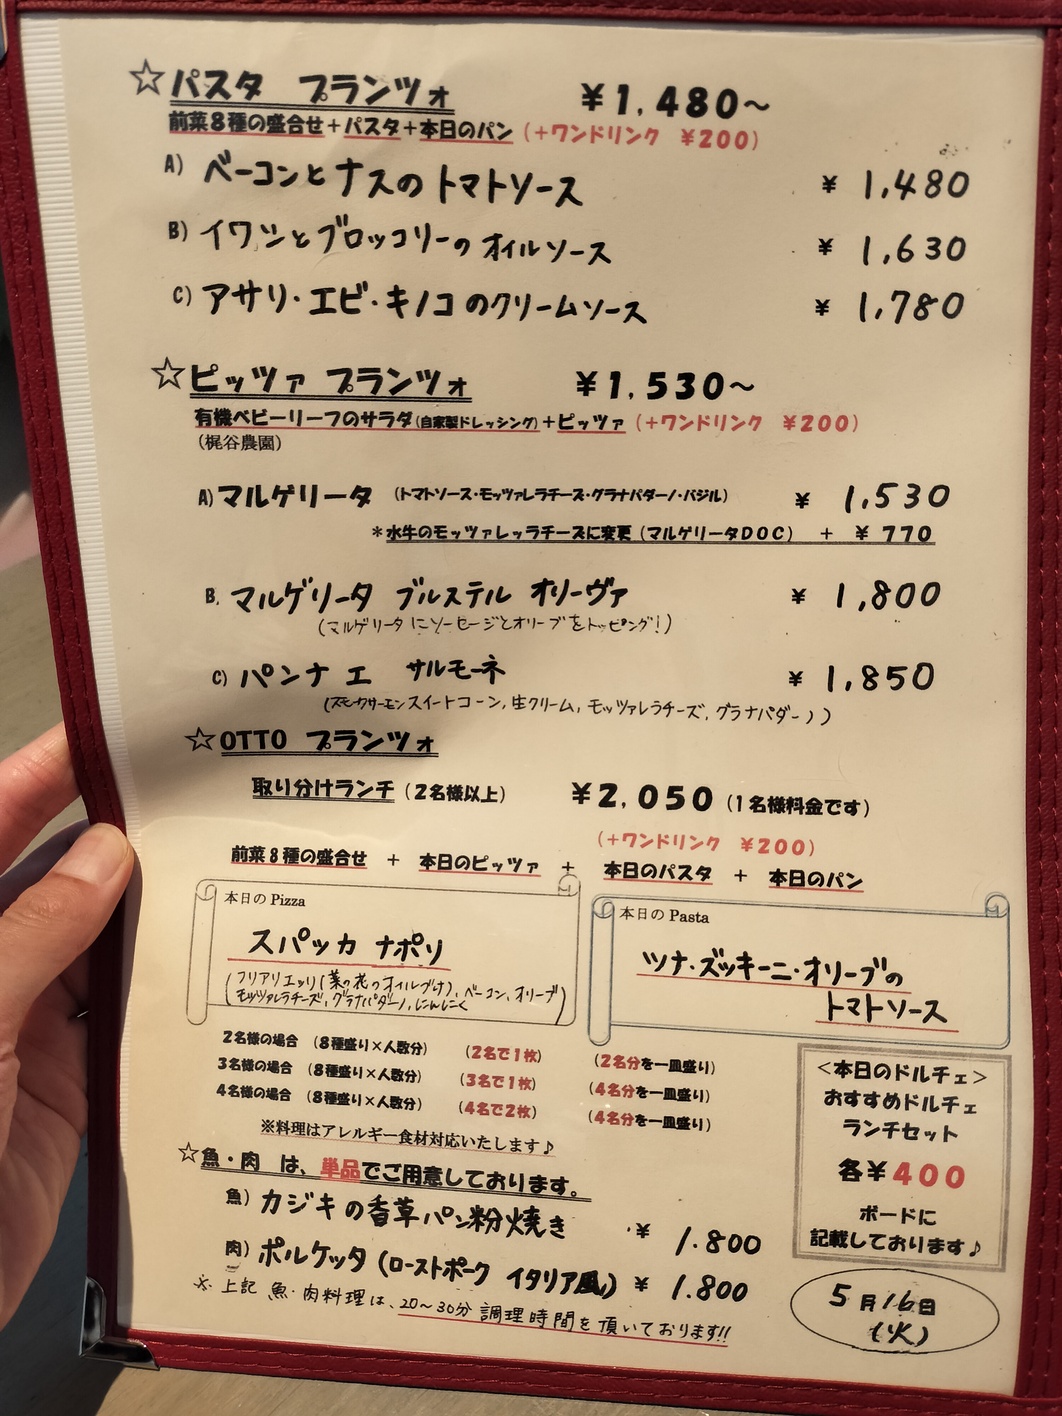 ☆パスタ プランツォ ¥1,480～
前菜8種の盛合せ+パスタ+本日のパン(+ワンドリンク ¥200)
A) ベーコンとナスのトマトソース ¥ 1,480
B) イワシとブロッコリーのオイルソース ¥ 1,630
C) アサリ・エビ・キノコのクリームソース ¥ 1,780
☆ピッツァ プランツォ ¥1,530～
有機ベビーリーフのサラダ(自家製ドレッシング)+ピッツァ(+ワンドリンク ¥200)
(梶谷農園)
A)マルゲリータ (トマトソース・モッツァレラチーズ・グラナパダーノ・バジル) ¥ 1,530
*水牛のモッツァレッラチーズに変更(マルゲリータDOC) + ¥ 770
B. マルゲリータ ブルステル オリーヴァ ¥ 1,800
(マルゲリータにソーセージとオリーブをトッピング!)
C) パンナ エ サルモーネ ¥ 1,850
(スモークサーモンスイートコーン, 生クリーム, モッツァレラチーズ, グラナパダーノ)
☆OTTO プランツォ
取り分けランチ(2名様以上) ¥2,050(1名様料金です)
(+ワンドリンク ¥200)
前菜8種の盛合せ + 本日のピッツァ + 本日のパスタ + 本日のパン
本日の Pizza
スパッカ ナポリ
(フリアリエッリ(菜の花のオイルづけ), ベーコン, オリーブ
モッツァレラチーズ, グラナパダーノ, にんにく)
本日の Pasta
ツナ・ズッキーニ・オリーブの
トマトソース
2名様の場合 (8種盛り×人数分) (2名で1枚) (2名分を一皿盛り)
3名様の場合 (8種盛り×人数分) (3名で1枚) (4名分を一皿盛り)
4名様の場合 (8種盛り×人数分) (4名で2枚) (4名分を一皿盛り)
※料理はアレルギー食材対応いたします♪
<本日のドルチェ>
おすすめドルチェ
ランチセット
各¥400
ボードに
記載しております♪
☆魚・肉 は、単品でご用意しております。
魚) カジキの香草パン粉焼き ¥ 1.800
肉) ポルケッタ(ローストポーク イタリア風) ¥ 1.800
※上記 魚・肉料理は、20～30分 調理時間を頂いております!!
5月16日
(火)